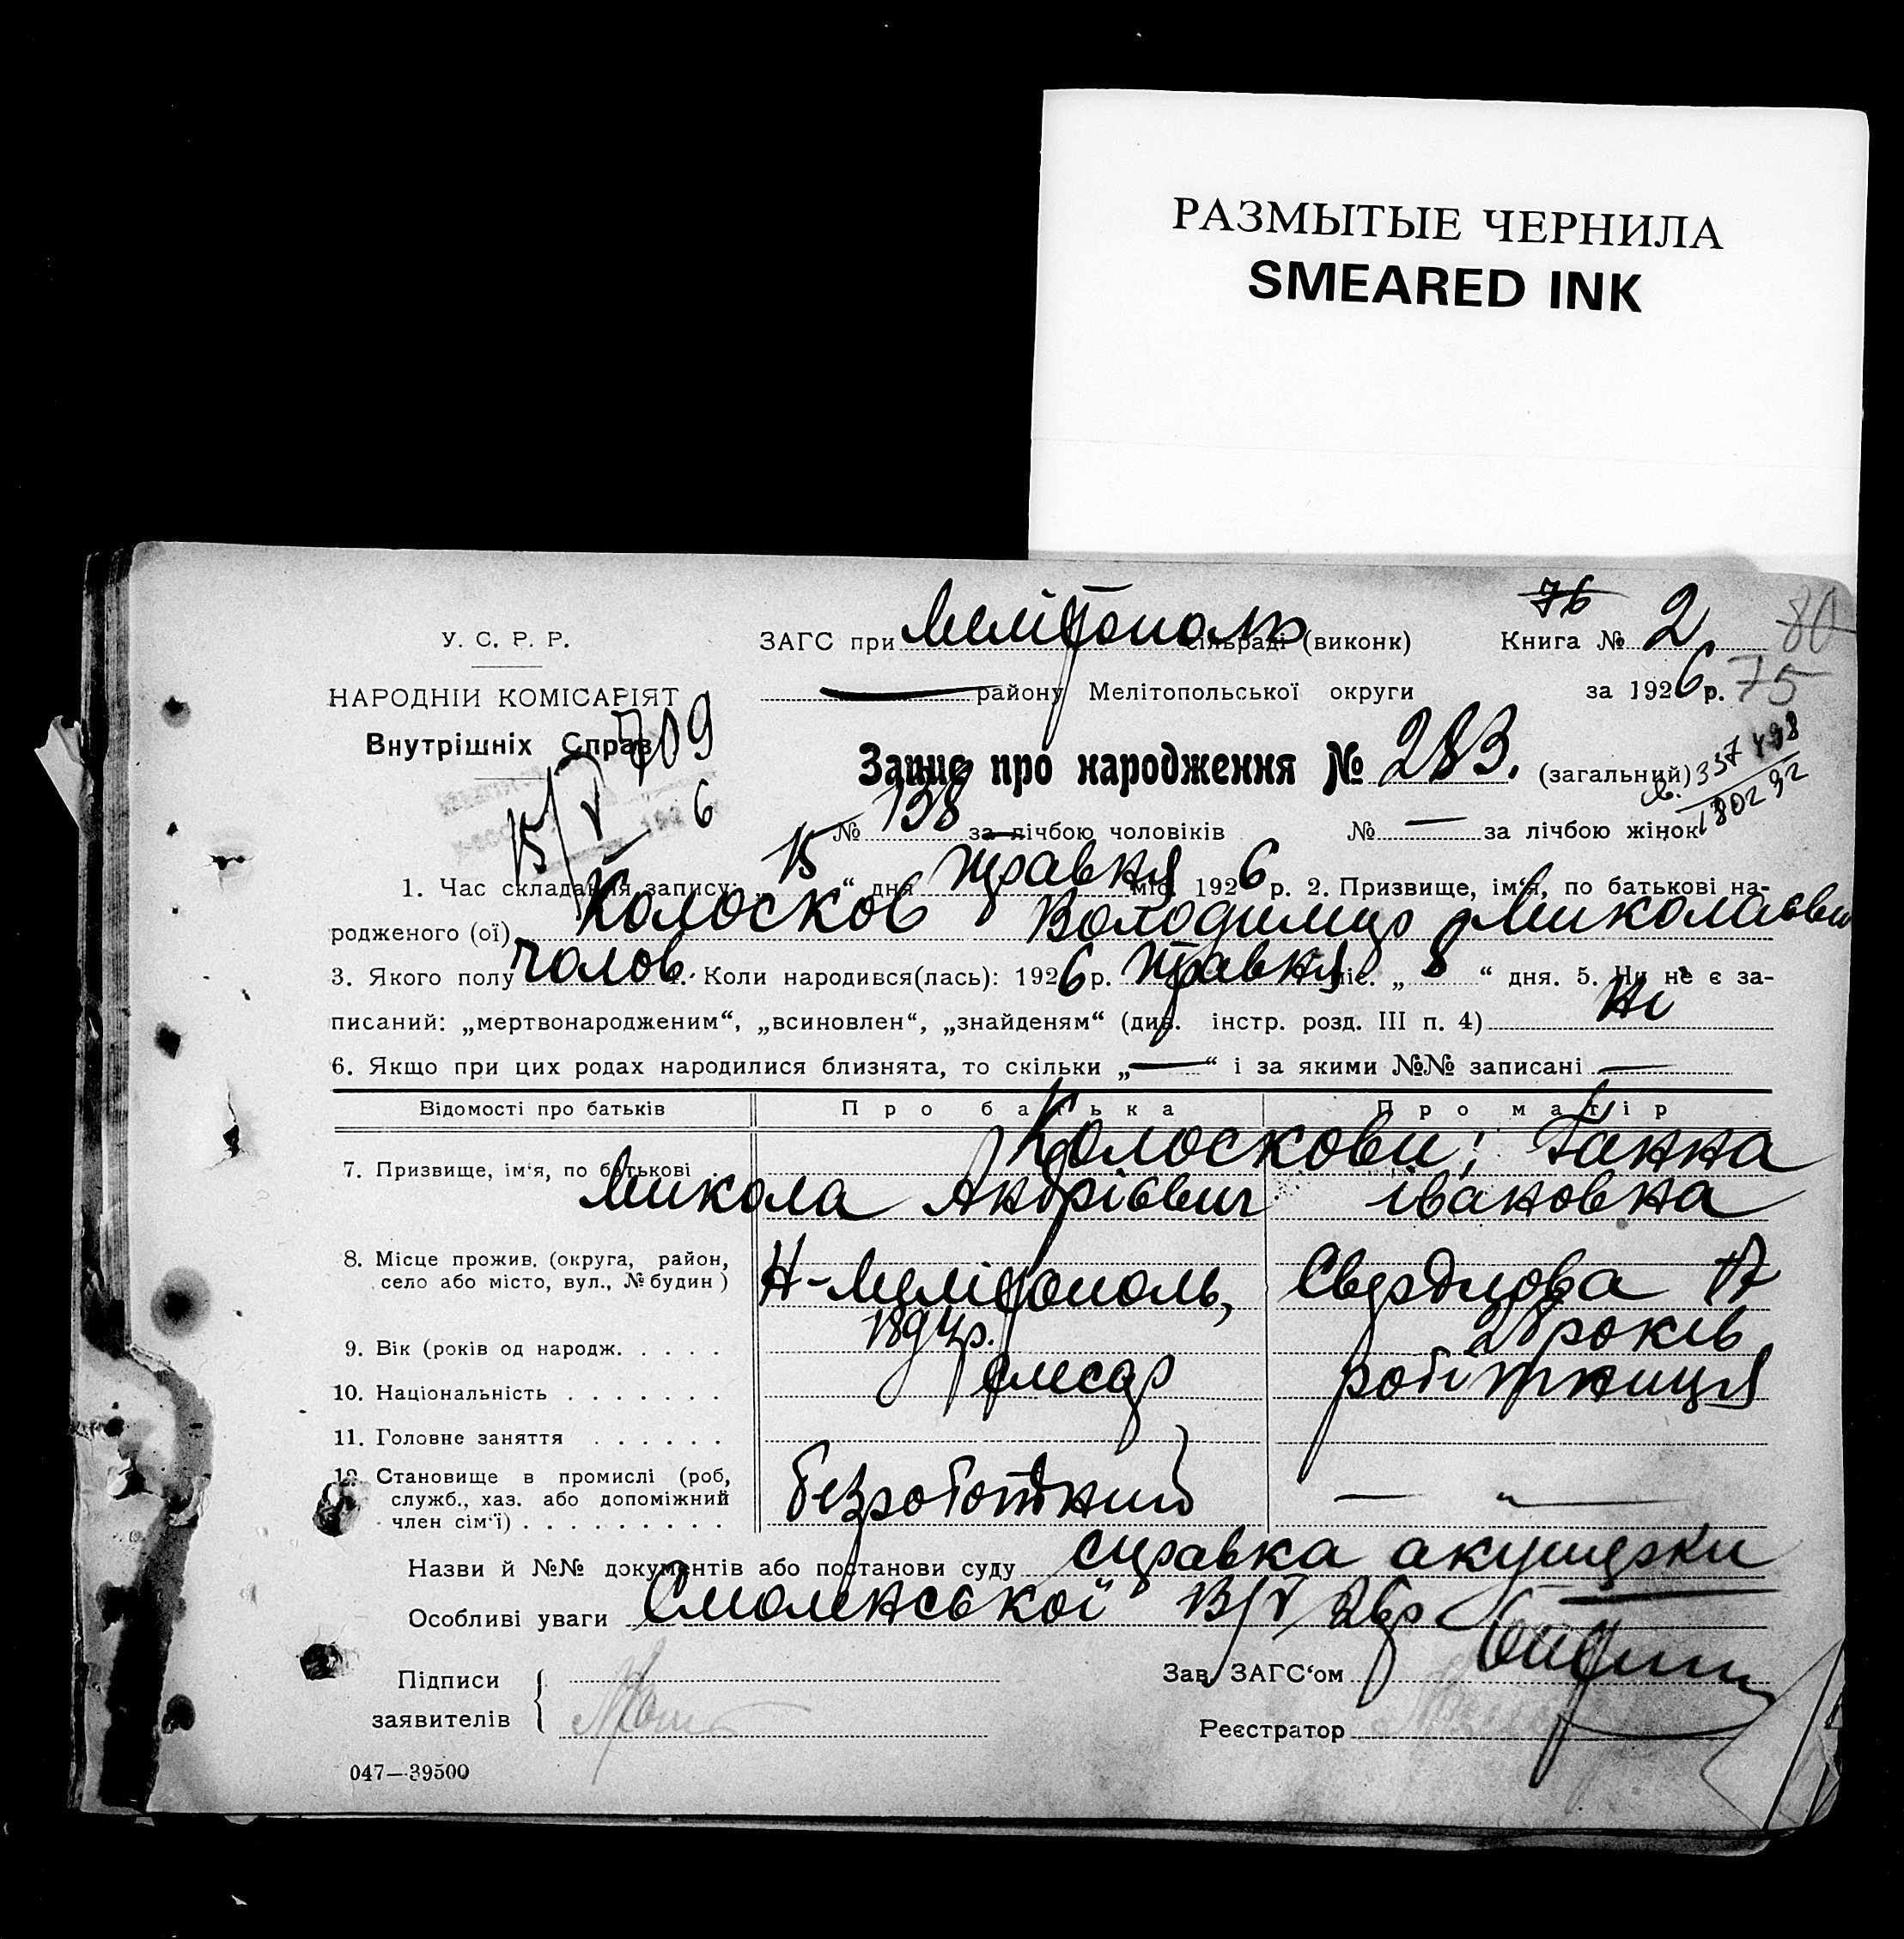 РАЗМЫТЫЕ ЧЕРНИЛА
SMEARED INK
76
80
У. С. Р. Р.
ЗАГС при Мелітополь сільраді (виконк) Книга № 2
НАРОДНІЙ КОМІСАРІЯТ
району Мелітопольської округи за 1926 р. 75
Внутрішніх Справ
709
6
15/V
Запис про народження № 283. (загальний)
№ 138 за лічбою чоловіків № — за лічбою жінок
1. Час складання запису: „15“ дня травня міс. 1926 р. 2. Призвище, ім‘я, по батькові на-
родженого (ої) Колосков Володимир Миколаєвич
3. Якого полу чолов. 4. Коли народився(лась): 1926 р. травня міс. „8“ дня. 5. Чи не є за-
писаний: „мертвонародженим“, „всиновлен“, „знайденям“ (див. інстр. розд. III п. 4) Ні
6. Якщо при цих родах народилися близнята, то скільки „—“ і за якими №№ записані —
Відомості про батьків Про батька Про матір
7. Призвище, ім‘я, по батькові Колоскови: Ганна
Микола Андрієвич Івановна
8. Місце прожив. (округа, район,
село або місто, вул., № будин) Н-Мелітополь, Свердлова 17
9. Вік (років од народж. . . . . 1894р. 28 років
10. Національність . . . . . . . слесар робітниця
11. Головне заняття . . . . . .
12. Становище в промислі (роб,
служб., хаз. або допоміжний
член сім‘ї) . . . . . . . . . безроботний — " —
Назви й №№ документів або постанови суду справка акушерки
Особливі уваги Смоленської 13/V 26р
Підписи
заявителів
Зав. ЗАГС‘ом
Реєстратор
047—39500